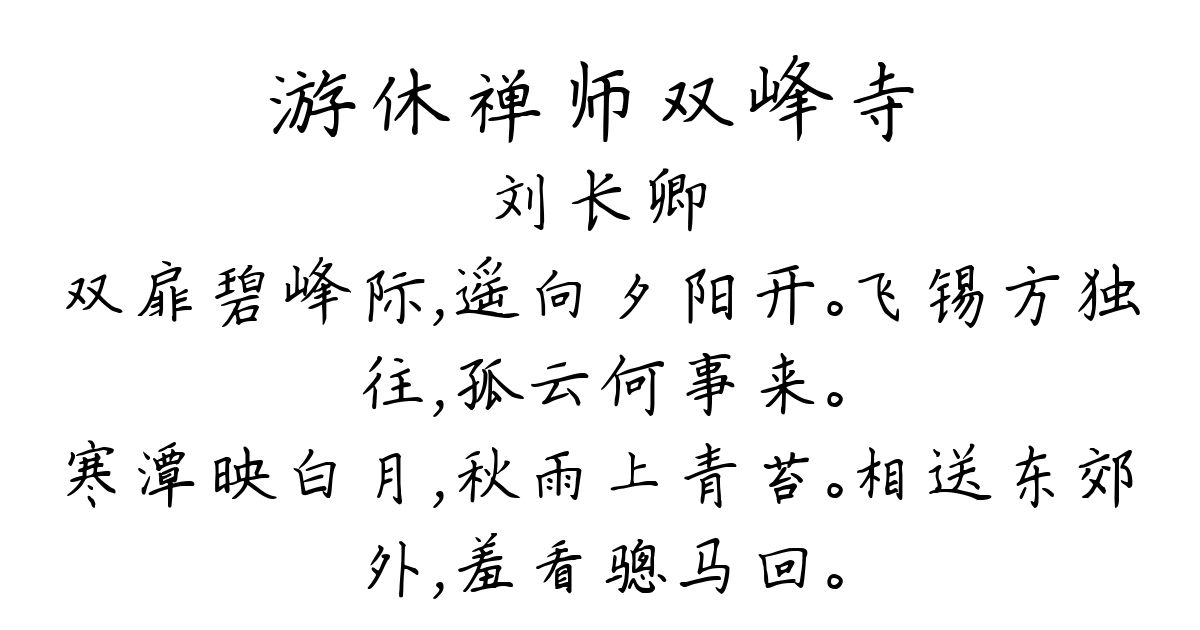 游休禅师双峰寺
刘长卿
双扉碧峰际,遥向夕阳开。飞锡方独
往,孤云何事来。
寒潭映白月,秋雨上青苔。相送东郊
外,羞看骢马回。